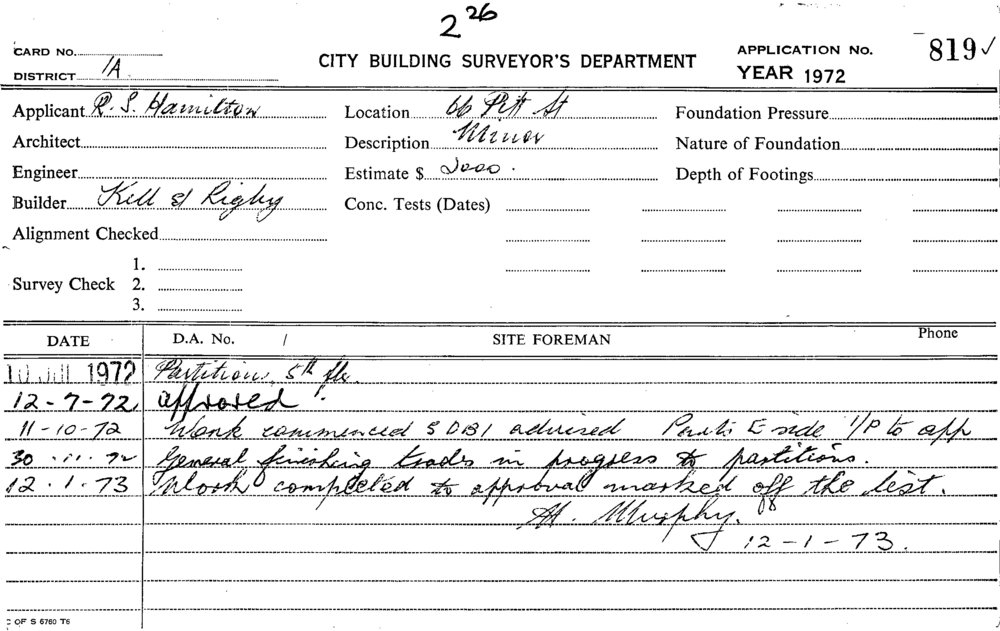 2 26
CARD No.
DISTRICT 1A
CITY BUILDING SURVEYOR'S DEPARTMENT
APPLICATION No. 819 ✓
YEAR 1972
Applicant R. S. Hamilton
Location 66 Pitt St
Foundation Pressure
Architect
Description Minor
Nature of Foundation
Engineer
Estimate $ 2000.
Depth of Footings
Builder Kell & Rigby
Conc. Tests (Dates)
Alignment Checked
Survey Check 1. 2. 3.
DATE D.A. No. / SITE FOREMAN Phone
10 JUL 1972 Partitions, 5th flr.
12-7-72 approved
11-10-72 Work commenced S DBI advised E side I/P to app
30.11.72 General finishing trades in progress to partitions.
12.1.73 Work completed to approval marked off the list.
Murphy.
12-1-73.
OF S 6760 T6